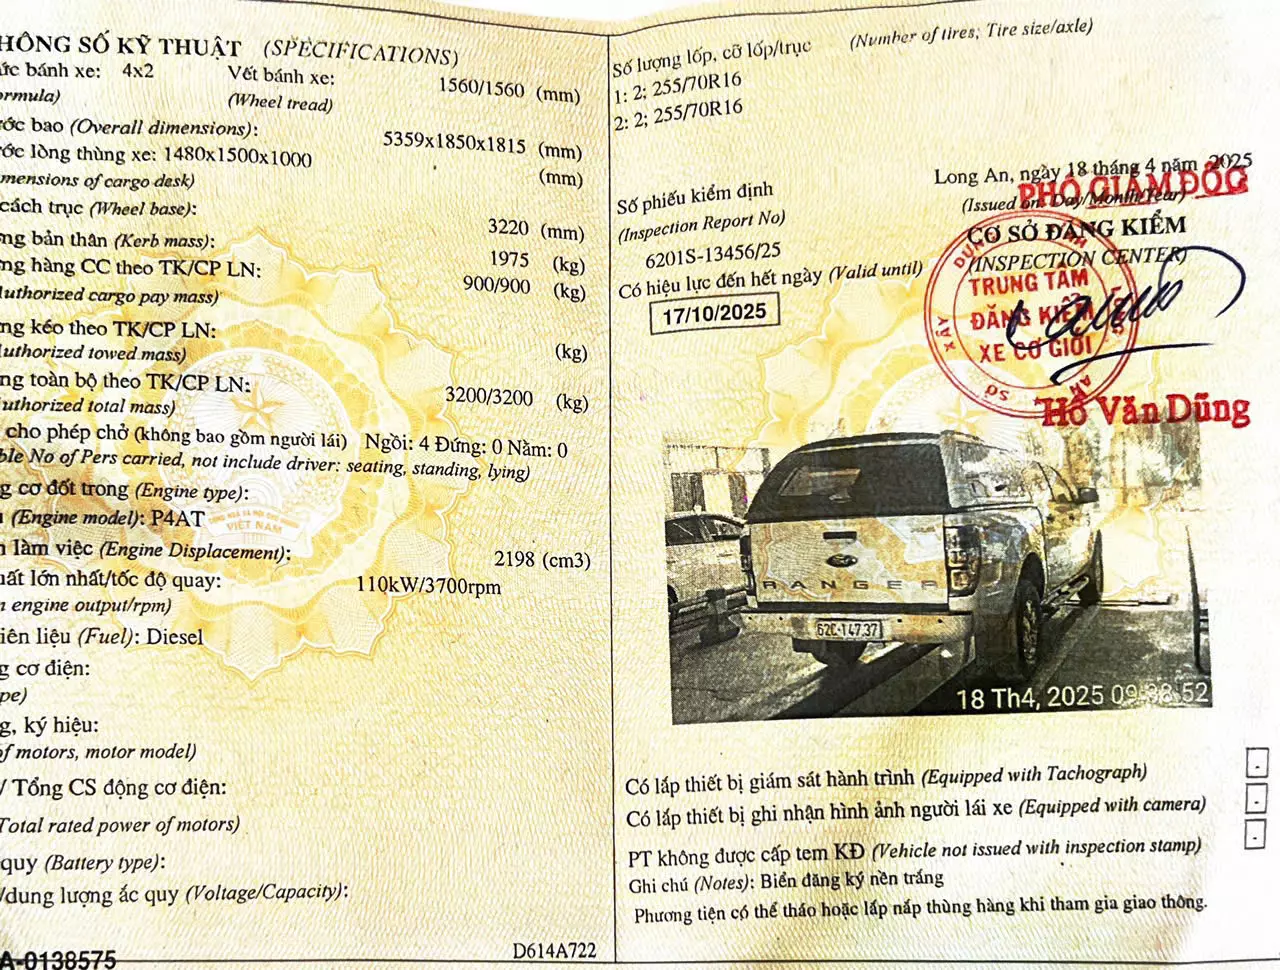 HÔNG SỐ KỸ THUẬT (SPECIFICATIONS)
ức bánh xe: 4x2 Vết bánh xe: 1560/1560 (mm)
ormula) (Wheel tread)
ớc bao (Overall dimensions): 5359x1850x1815 (mm)
ớc lòng thùng xe: 1480x1500x1000 (mm)
mensions of cargo desk)
cách trục (Wheel base): 3220 (mm)
ng bản thân (Kerb mass): 1975 (kg)
ng hàng CC theo TK/CP LN: 900/900 (kg)
uthorized cargo pay mass)
ng kéo theo TK/CP LN: (kg)
uthorized towed mass)
ng toàn bộ theo TK/CP LN: 3200/3200 (kg)
uthorized total mass)
cho phép chở (không bao gồm người lái) Ngồi: 4 Đứng: 0 Nằm: 0
ble No of Pers carried, not include driver: seating, standing, lying)
g cơ đốt trong (Engine type):
(Engine model): P4AT
VIỆT NAM
h làm việc (Engine Displacement): 2198 (cm3)
uất lớn nhất/tốc độ quay: 110kW/3700rpm
n engine output/rpm)
iên liệu (Fuel): Diesel
g cơ điện:
pe)
g, ký hiệu:
of motors, motor model)
/ Tổng CS động cơ điện:
Total rated power of motors)
quy (Battery type):
/dung lượng ắc quy (Voltage/Capacity):
A-0138575
D614A722
Số lượng lốp, cỡ lốp/trục (Number of tires; Tire size/axle)
1: 2; 255/70R16
2: 2; 255/70R16
Long An, ngày 18 tháng 4 năm 2025
(Issued on: Day/Month/Year)
PHÓ GIÁM ĐỐC
CƠ SỞ ĐĂNG KIỂM
(INSPECTION CENTER)
Số phiếu kiểm định
(Inspection Report No)
6201S-13456/25
Có hiệu lực đến hết ngày (Valid until)
17/10/2025
TRUNG TÂM
ĐĂNG KIỂM
XE CƠ GIỚI
Hồ Văn Dũng
Ford
RANGER
62C-147.37
18 Th4, 2025 09:38:52
Có lắp thiết bị giám sát hành trình (Equipped with Tachograph) -
Có lắp thiết bị ghi nhận hình ảnh người lái xe (Equipped with camera) -
PT không được cấp tem KĐ (Vehicle not issued with inspection stamp) -
Ghi chú (Notes): Biển đăng ký nền trắng
Phương tiện có thể tháo hoặc lắp nắp thùng hàng khi tham gia giao thông.